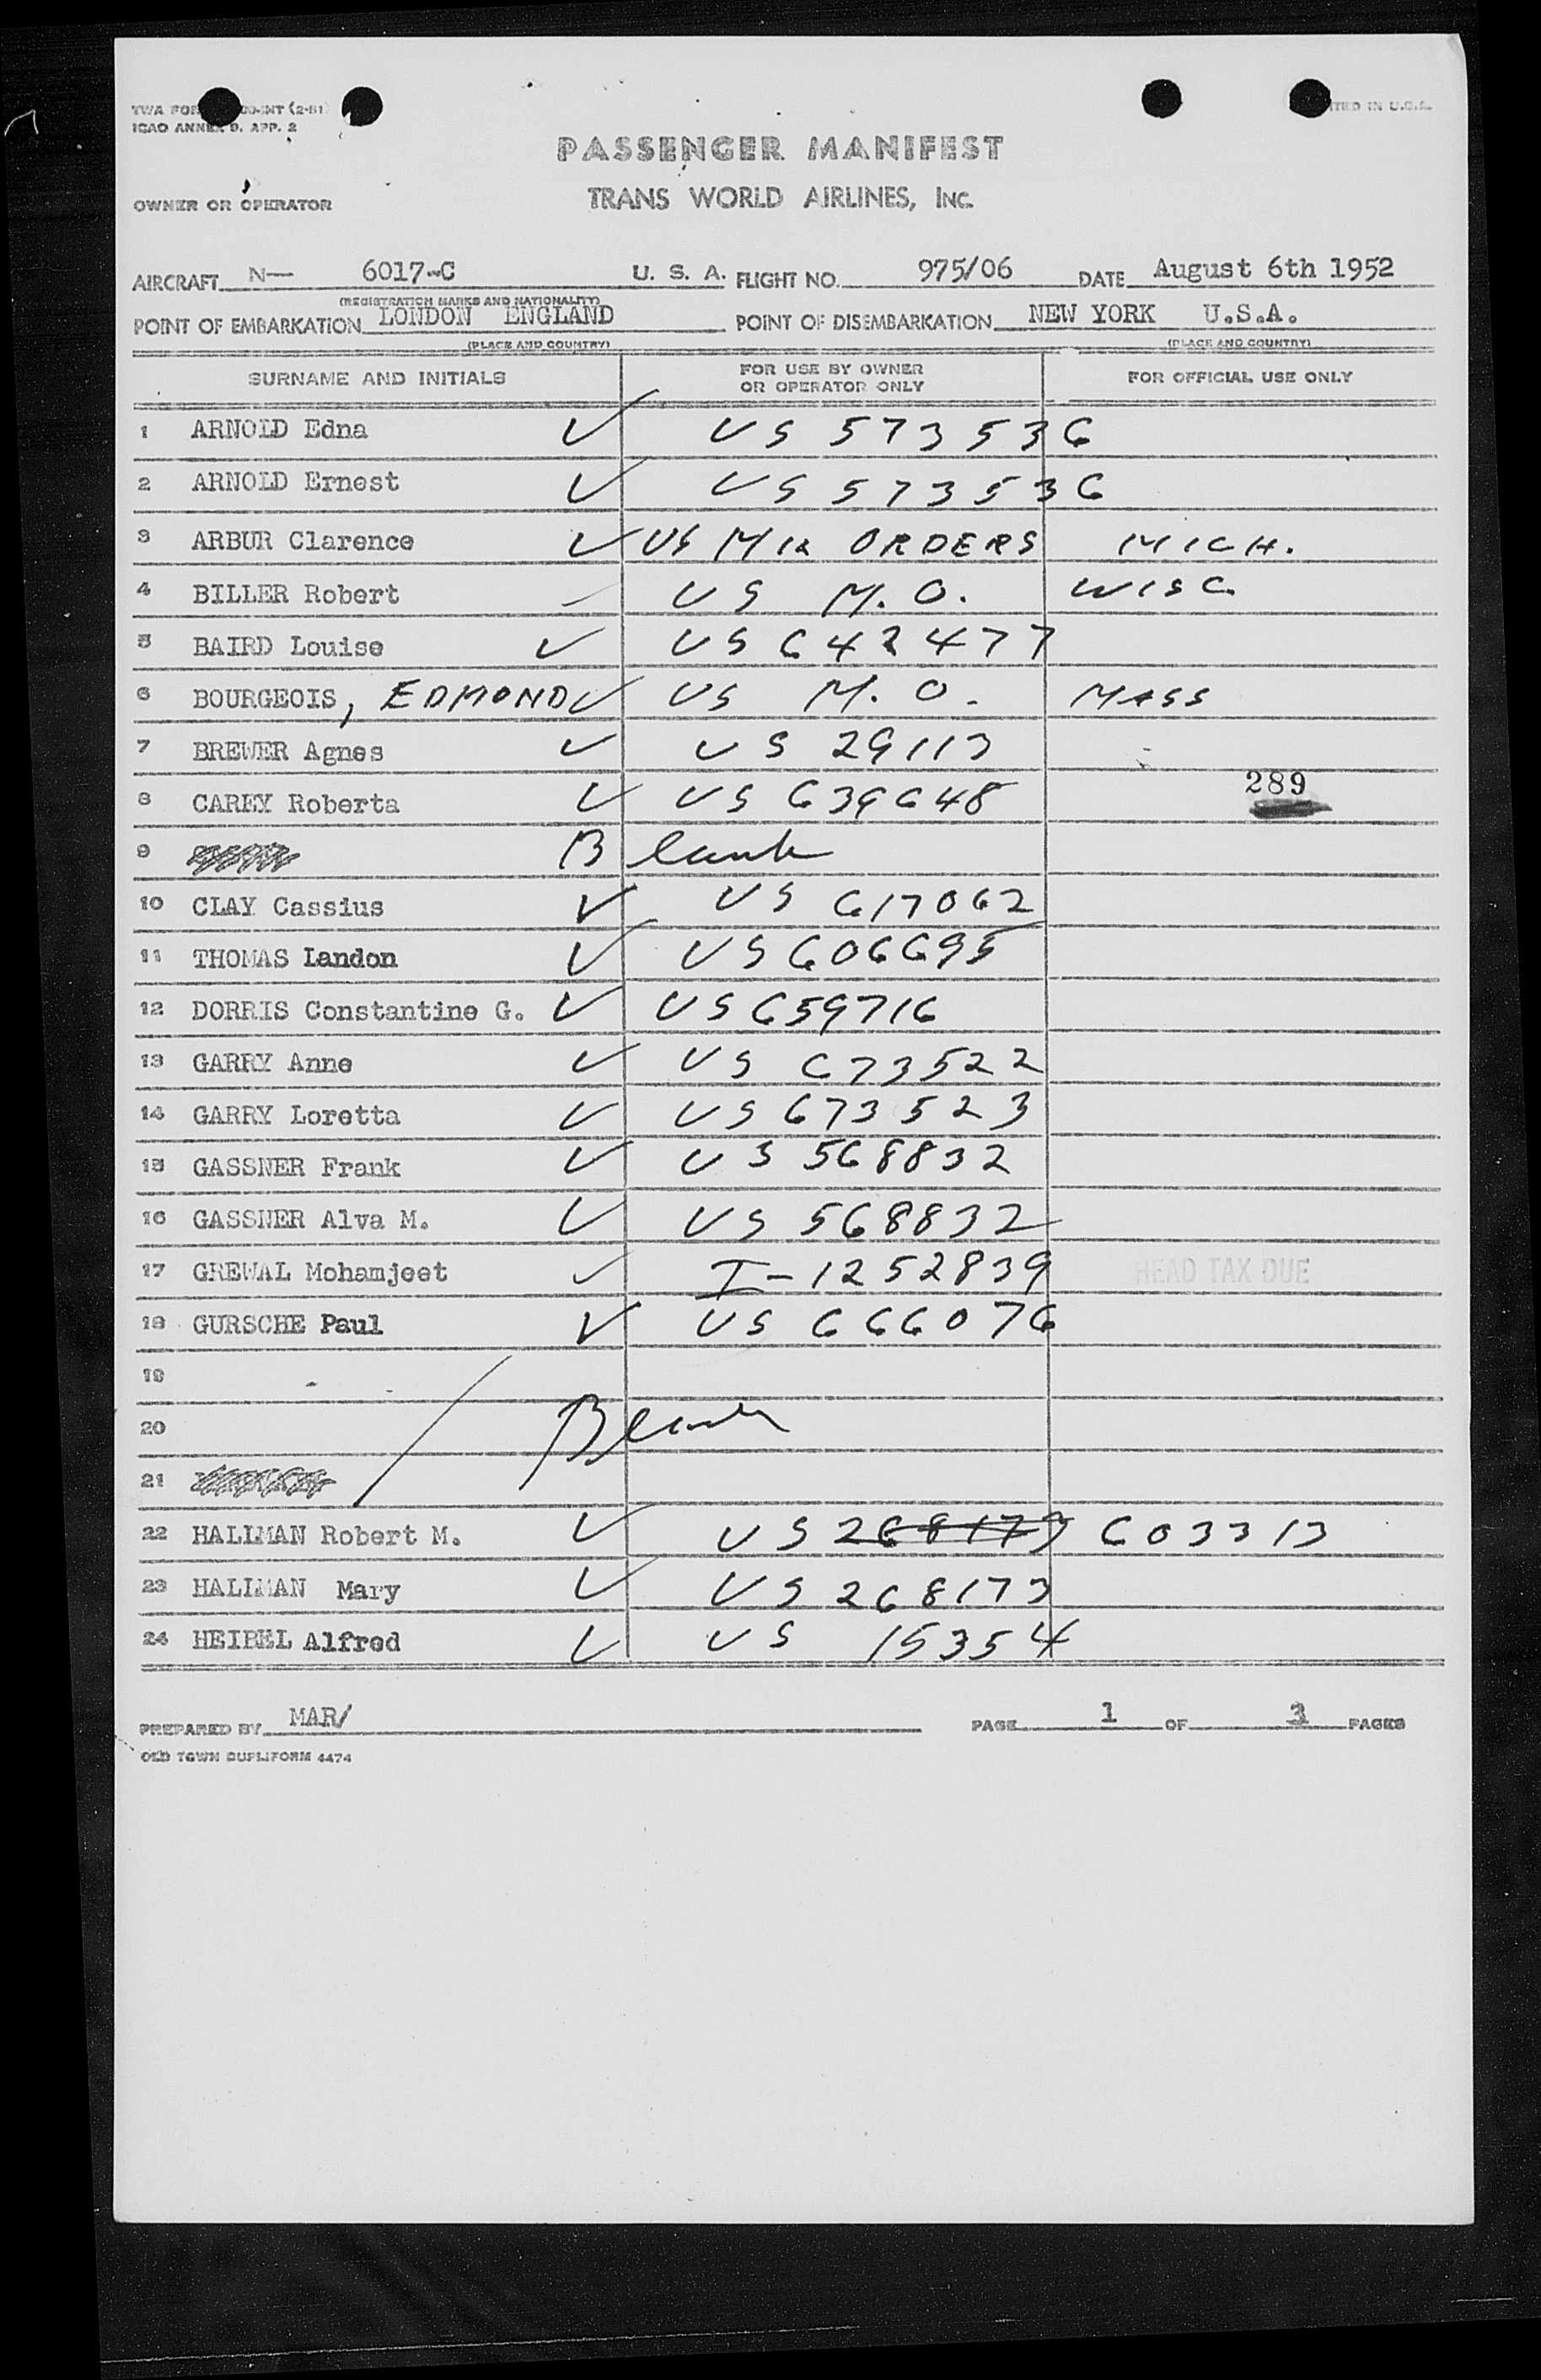 TWA FOR
ICAO ANNEX 9, APP. 2
PASSENGER MANIFEST
OWNER OR OPERATOR
TRANS WORLD AIRLINES, INC.
AIRCRAFT N— 6017-C U. S. A. FLIGHT NO. 975/06 DATE August 6th 1952
(REGISTRATION MARKS AND NATIONALITY)
POINT OF EMBARKATION LONDON ENGLAND POINT OF DISEMBARKATION NEW YORK U.S.A.
(PLACE AND COUNTRY) (PLACE AND COUNTRY)
SURNAME AND INITIALS FOR USE BY OWNER OR OPERATOR ONLY FOR OFFICIAL USE ONLY
1 ARNOLD Edna ✓ US 573536
2 ARNOLD Ernest ✓ US 573536
3 ARBUR Clarence ✓ US ORDERS MICH.
4 BILLER Robert US M.O. WISC
5 BAIRD Louise ✓ US 642477
6 BOURGEOIS, EDMOND ✓ US M.O. MASS
7 BREWER Agnes ✓ US 29113
289
8 CAREY Roberta ✓ US 639648
9 Blank
10 CLAY Cassius ✓ US 617062
11 THOMAS Landon ✓ US 606695
12 DORRIS Constantine G. ✓ US 659716
13 GARRY Anne ✓ US 673522
14 GARRY Loretta ✓ US 673523
15 GASSNER Frank ✓ US 568832
16 GASSNER Alva M. ✓ US 568832
17 GREWAL Mohamjeet ✓ I-1252839 HEAD TAX DUE
18 GURSCHE Paul ✓ US 666076
19
20 Blank
21
22 HALLMAN Robert M. ✓ US 268173 603313
23 HALLMAN Mary ✓ US 268173
24 HEIBEL Alfred ✓ US 15354
PREPARED BY MAR/ PAGE 1 OF 3 PAGES
OLD TOWN DUPLIFORM 4474